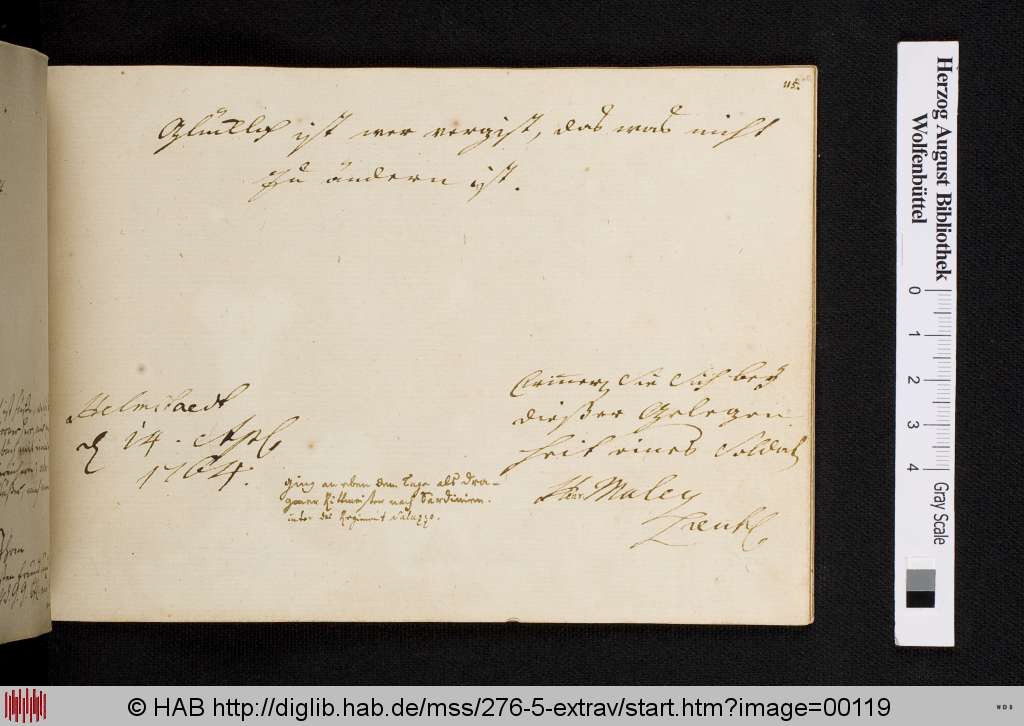 115.
Glücklich ist wer vergist, das was nicht
zu ändern ist.
Helmstaedt
d 14. Apl
1764.
Erinnern Sie Sich bey
dießer Gelegen
heit eines Soldat
Maley
ging an eben dem Tage als Dra-
goner Rittmeister nach Sardinien.
unter das Regiment Saluzzo.
Herzog August Bibliothek
Wolfenbüttel
0 1 2 3 4 Gray Scale
© HAB http://diglib.hab.de/mss/276-5-extrav/start.htm?image=00119